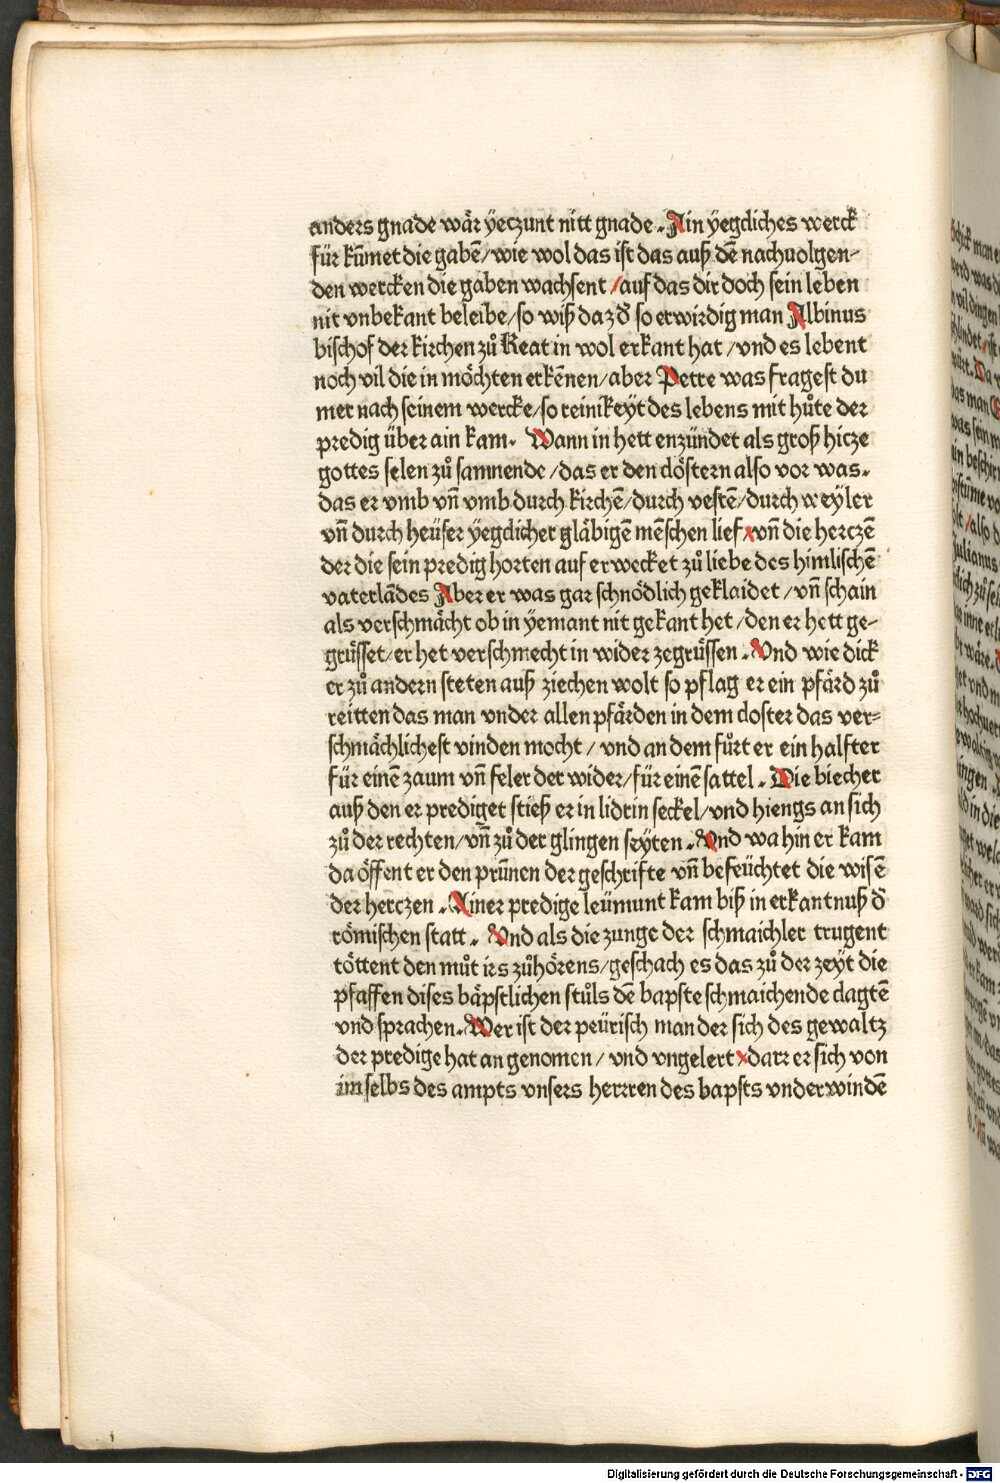 anders gnade wär yeczunt nitt gnade. Ain yegcliches werck
für kūmet die gabē/wie wol das ist das auß dē nachuolgen-
den wercken die gaben wachsent/auf das dir doch sein leben
nit vnbekant beleibe/so wiß daz d̄ so erwirdig man Albinus
bischof der kirchen zů Reatin wol erkant hat/vnd es lebent
noch vil die in möchten erkēnen/aber Petre was fragest du
mer nach seinem wercke/so reinikeyt des lebens mit hůte der
predig über ain kam. Wann in hett enzündet als groß hicze
gottes selen zů samnende/das er den clöstern also vor was.
das er vmb vn̄ vmb durch kirchē/durch vestē/durch weyler
vn̄ durch heüser yegclicher gläbigē mēschen lief vn̄ die herczē
der die sein predig horten auf erwecket zů liebe des himlischē
vaterlādes Aber er was gar schnödlich geklaidet/vn̄ schain
als verschmächt ob in yemant nit gekant het/den er hett ge-
grüsset/er het verschmecht in wider zegrüssen. Vnd wie dick
er zů andern steten auß ziechen wolt so pflag er ein pfärd zů
reitten das man vnder allen pfärden in dem closter das ver=
schmächlichest vinden mocht/vnd an dem fůrt er ein halfter
für einē zaum vn̄ feler der wider/für einē sattel. Die biecher
auß den er prediget stieß er in lidrin seckel/vnd hiengs an sich
zů der rechten/vn̄ zů der glingen seyten. Vnd wa hin er kam
da öffent er den prūnen der geschrifte vn̄ befeüchtet die wisē
der herczen. Ainer predige leümunt kam biß in erkantnuß d̄
römischen statt. Vnd als die zunge der schmaichler trugent
töttent den můt irs zůhörens/geschach es das zů der zeyt die
pfaffen dises bäpstlichen stůls dē bapste schmaichende clagtē
vnd sprachen. Wer ist der peürisch man der sich des gewaltz
der predige hat an genomen/vnd vngelert darr er sich von
im selbs des ampts vnsers herrren des bapsts vnderwindē
Digitalisierung gefördert durch die Deutsche Forschungsgemeinschaft - DFG